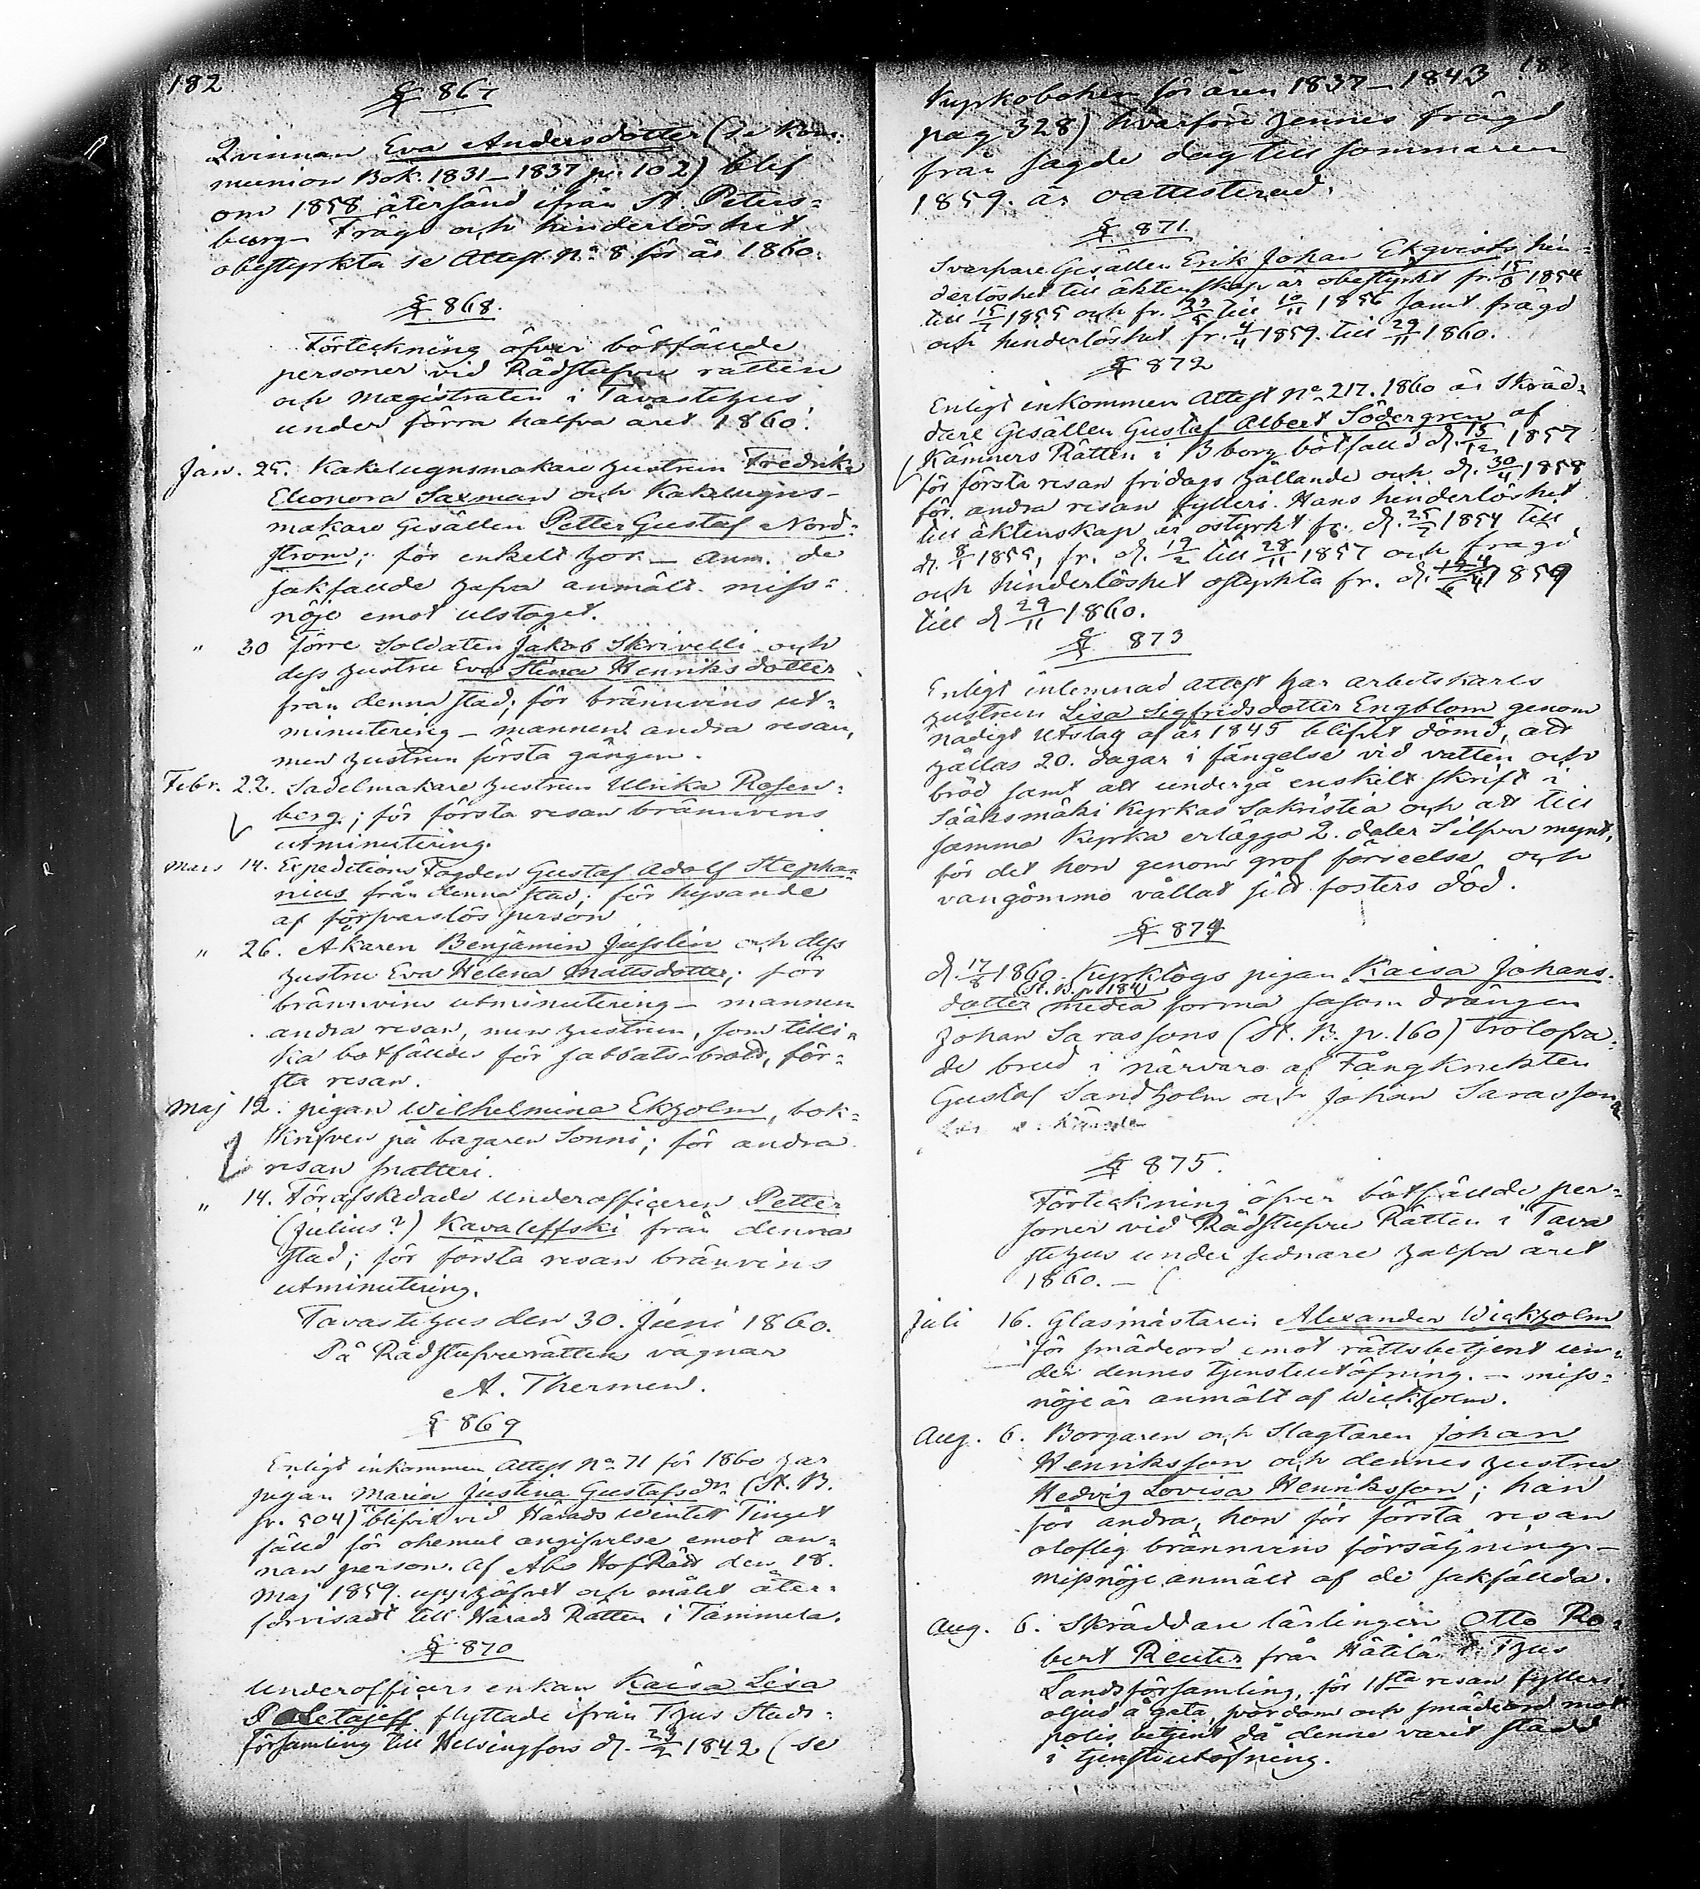 182
§ 867
Qvinnan Eva Andersdotter (se Kom-
munion Bok. 1831–1837 p. 102) blef
om 1858 återsänd ifrån St Peters-
burg – Frägd och hinderlöshet
obestyrkta se Attest No 8 för år 1860.
§ 868.
Förteckning öfver bötfällde
personer vid Rådstufvu rätten
och Magistraten i Tavastehus
under förra halfva året 1860.
Jan. 25. Kakelugnsmakare hustrun Fredrika
Eleonora Saxman och Kakelugns-
makare Gesällen Petter Gustaf Nord-
ström; för enkelt hor – Anm. de
sakfällde hafva anmält miss-
nöje emot utslaget.
" 30 förre Soldaten Jakob Skrivelli och
dess hustru Eva Stina Henriksdotter
från denna stad; för brännvins ut-
minutering – mannen andra resan,
men hustrun första gången.
Febr. 22. Sadelmakare hustrun Ulrika Rosen-
berg; för första resan brännvins
utminutering.
Mars 14. Expeditions Fogden Gustaf Adolf Stepha-
nius från denna stad; för hysande
af försvarslös person
" 26. Åkaren Benjamin Jusslin och dess
hustru Eva Helena Mattsdotter; för
brännvins utminutering – mannen
andra resan, men hustrun, som tilli-
ka bötfälldes för sabbats-brott, för-
sta resan.
Maj 12. pigan Wilhelmina Ekholm, bok-
skrifven på bagaren Sonni; för andra
resan snatteri.
" 14. Förafskedade Underofficeren Petter
(Julius?) Kavaleffski från denna
stad; för första resan bränvins
utminutering.
Tavastehus den 30. Juni 1860.
På Rådstufvurättens vägnar
A. Thermen.
§ 869
Enligt inkommen Attest No 71 för 1860 har
pigan Maria Justina Gustafsdr (St. B.
p. 504) blifvit vid Härads Winter Tinget
fälld för ohemul angifvelse emot an-
nan person. Af Åbo HofRätt den 18.
Maj 1859 upphäfvet och målet åter-
förvisadt till Härads Rätten i Tammela.
§ 870
Underofficers enkan Kaisa Lisa
Poletajeff flyttade ifrån Thus Stads-
församling till Helsingfors d. 23/2 1842 (se
Kyrkoboken för åren 1837–1843
pag 328) hvarföre hennes frägd
från sagde dag till sommaren
1859. är oattesterad.
§ 871
Svarfvare Gesällen Erik Johan Ekqvists hin-
derlöshet till äktenskap är obestyrkt fr. 1854
till 1855 och fr. till 10/11 1856 samt frägd
och hinderlöshet fr. 4/4 1859. till 29/11 1860.
§ 872
Enligt inkommen Attest No 217. 1860 är Skräd-
dare Gesällen Gustaf Albert Södergren af
Kämners Rätten i Bborg bötfälld d. 15/12 1857
för första resan fridags hållande och d. 30/4 1858
för andra resan fylleri. Hans hinderlöshet
till äktenskap är ostyrkt fr. d. 1854 till
d. 1855, fr. d. 19/2 till 28/11 1857 och frägd
och hinderlöshet ostyrkta fr. d. 1859
till d 29/11 1860.
§ 873
Enligt inlemnad attest har arbetskarls
hustrun Lisa Sigfridsdotter Engblom genom
Nådigt Utslag af år 1845 blifvit dömd, att
hållas 20. dagar i fängelse vid vatten och
bröd samt att undergå enskilt skrift i
Sääksmäki Kyrkas Sakristia och att till
samma Kyrka erlägga 2. daler Silfver mynt,
för det hon genom grof förseelse och
vangömmo vållat sitt fosters död.
§ 874
d 17/8 1860 Kyrktogs pigan Kaisa Johans-
(St. B. p. 184)
dotter media forma såsom drängen
Johan Sarassons (St. B. p. 160) trolofva-
de brud i närvaro af Fångknekten
Gustaf Sandholm och Johan Sarasson
§ 875.
Förteckning öfver bötfällde per-
soner vid Rådstufvu Rätten i Tava
stehus under sednare halfva året
1860. –
Juli 16. Glasmästaren Alexander Wickholm
för smädeord emot rättsbetjent un-
der dennes tjensteutöfning. – miss-
nöje är anmält af Wickholm.
Aug. 6. Borgaren och Slagtaren Johan
Henriksson och dennes hustru
Hedvig Lovisa Henriksson; han
för andra, hon för första resan
oloflig brännvins försäljning –
missnöje anmält af de sakfällda.
Aug. 6. Skräddare lärlingen Otto Ro-
bert Reuter från Hätilä i Thus
Landsförsamling, för 1sta resan fylleri
oljud å gata, svordom och smädeord mot
polis betjent då denne varit stadd
i tjensteutöfning.